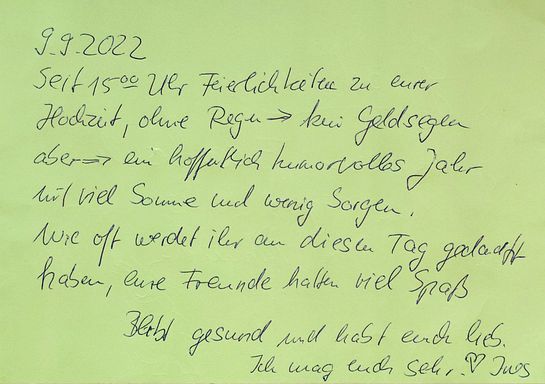 9.9.2022
Seit 15⁰⁰ Uhr Feierlichkeiten zu eurer
Hochzeit, ohne Regen → kein Geldsegen
aber → ein hoffentlich humorvolles Jahr
mit viel Sonne und wenig Sorgen.
Wie oft werdet ihr an diesen Tag gedacht
haben, eure Freunde hatten viel Spaß
Bleibt gesund und habt euch lieb.
Ich mag euch sehr. ♡ Ines